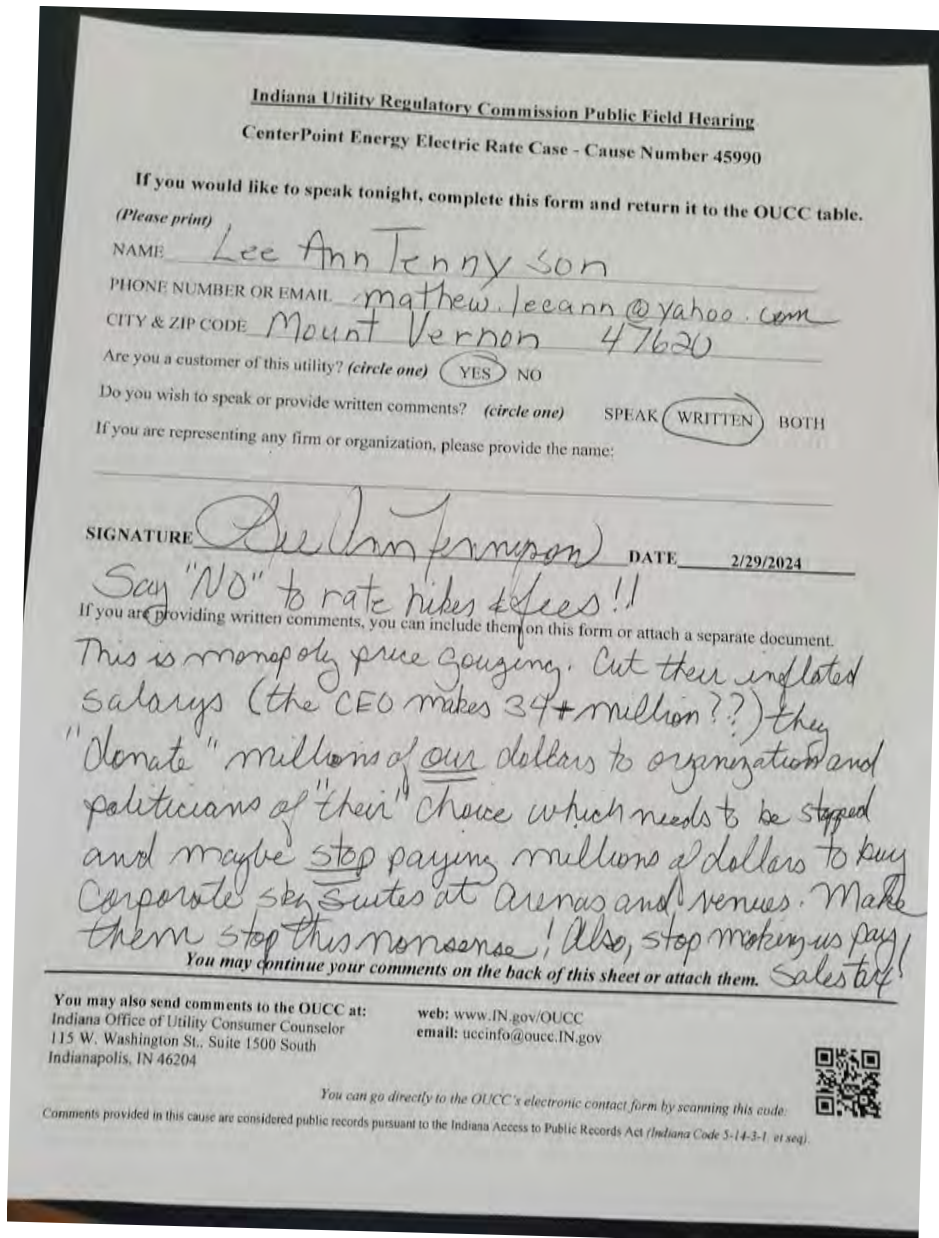 Indiana Utility Regulatory Commission Public Field Hearing
CenterPoint Energy Electric Rate Case - Cause Number 45990
If you would like to speak tonight, complete this form and return it to the OUCC table.
(Please print)
NAME Lee Ann Tennyson
PHONE NUMBER OR EMAIL mathew.leeann@yahoo.com
CITY & ZIP CODE Mount Vernon 47620
Are you a customer of this utility? (circle one) YES NO
Do you wish to speak or provide written comments? (circle one) SPEAK WRITTEN BOTH
If you are representing any firm or organization, please provide the name:
SIGNATURE Lee Ann Tennyson DATE 2/29/2024
Say "NO" to rate hikes & fees!!
If you are providing written comments, you can include them on this form or attach a separate document.
This is monopoly price gouging. Cut their inflated
salarys (the CEO makes 34+ million??) they
"donate" millions of our dollars to organization and
politicians of "their" choice which needs to be stopped
and maybe stop paying millions of dollars to buy
Corporate sky suites at arenas and venues. Make
them stop this nonsense! Also, stop making us pay
Sales tax!
You may continue your comments on the back of this sheet or attach them.
You may also send comments to the OUCC at:
Indiana Office of Utility Consumer Counselor
115 W. Washington St., Suite 1500 South
Indianapolis, IN 46204
web: www.IN.gov/OUCC
email: uccinfo@oucc.IN.gov
You can go directly to the OUCC's electronic contact form by scanning this code:
Comments provided in this cause are considered public records pursuant to the Indiana Access to Public Records Act (Indiana Code 5-14-3-1, et seq).